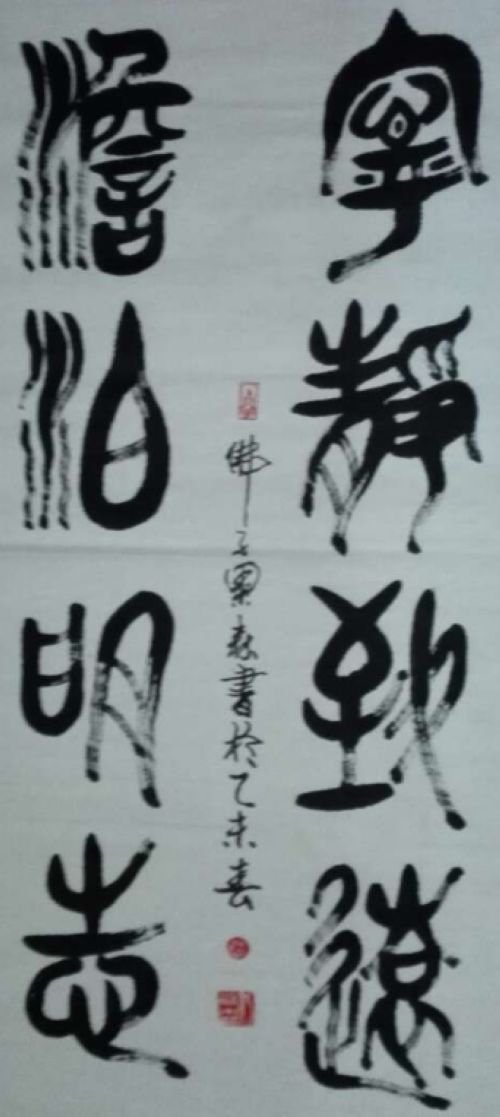 寧靜致遠
澹泊明志
佛子書於乙未春